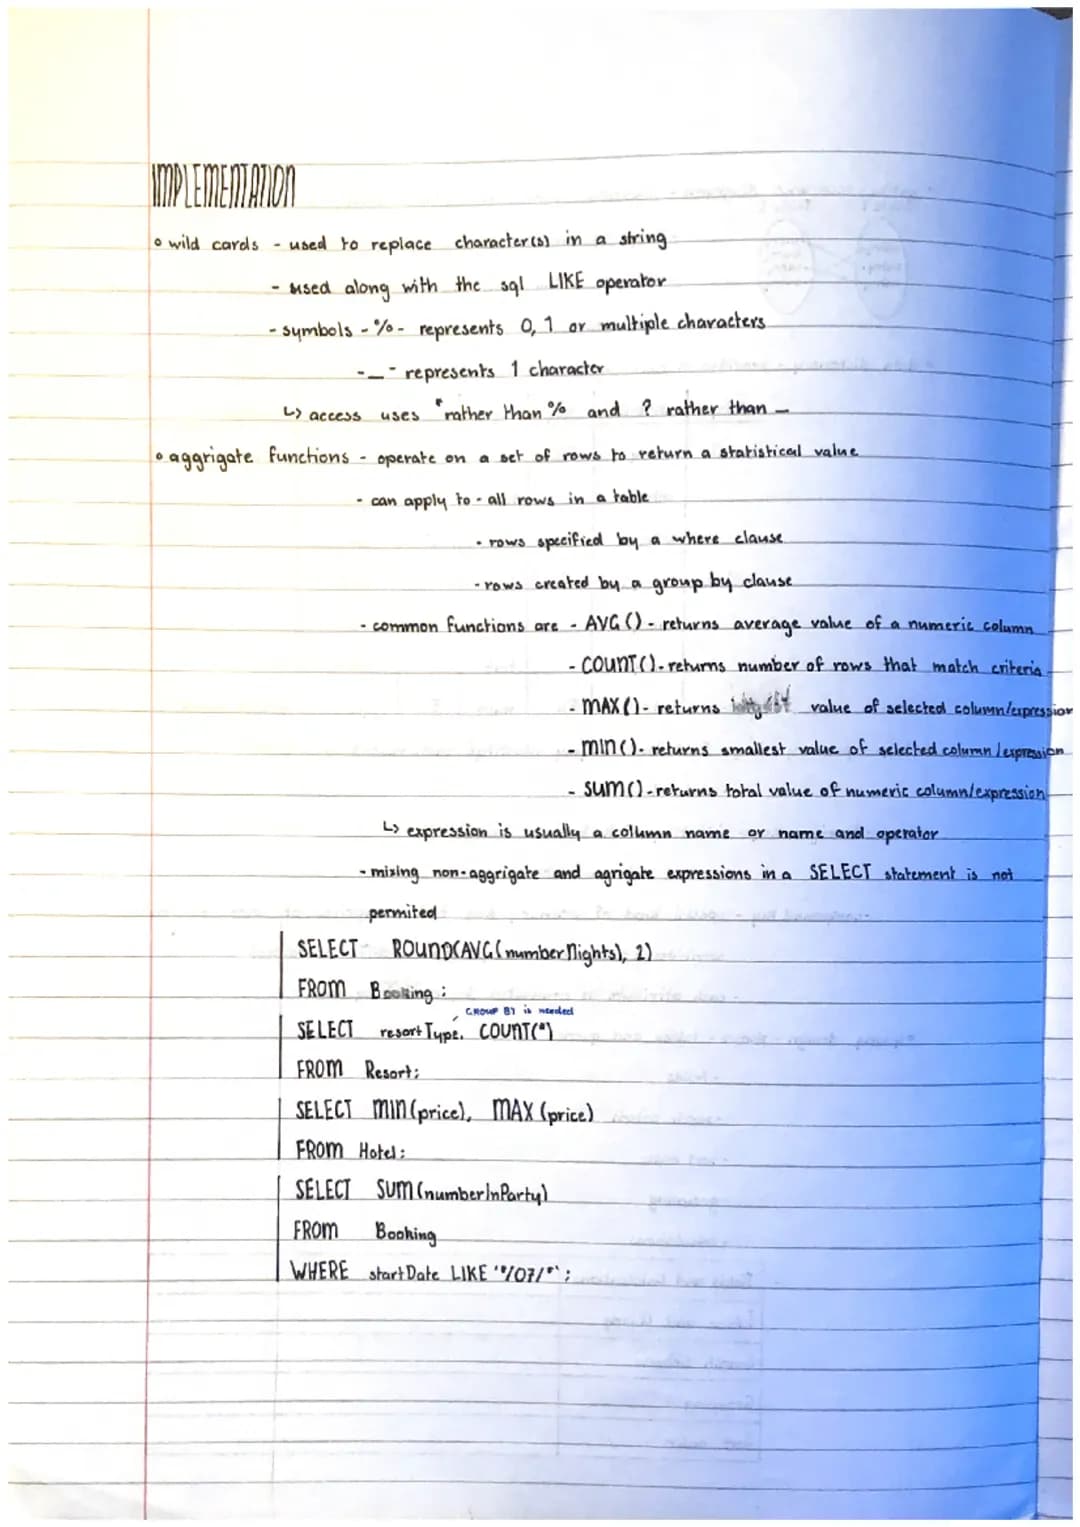 IMPLEMENTATION
◦ wild cards - used to replace character(s) in a string
- used along with the sql LIKE operator
- symbols - % - represents 0, 1 or multiple characters
- _ - represents 1 character
↳ access uses * rather than % and ? rather than _
◦ aggrigate functions - operate on a set of rows to return a statistical value
- can apply to - all rows in a table
- rows specified by a where clause
- rows created by a group by clause
- common functions are - AVG () - returns average value of a numeric column
- COUNT () - returns number of rows that match criteria
- MAX () - returns value of selected column/expression
- MIN () - returns smallest value of selected column/expression
- SUM () - returns total value of numeric column/expression
↳ expression is usually a collumn name or name and operator
- mixing non-aggrigate and agrigate expressions in a SELECT statement is not
permited
SELECT ROUND(AVG(numberNights), 2)
FROM Booking;
GROUP BY is needed
SELECT resortType, COUNT(*)
FROM Resort;
SELECT MIN(price), MAX (price)
FROM Hotel;
SELECT SUM(numberInParty)
FROM Booking
WHERE startDate LIKE '*/07/*';